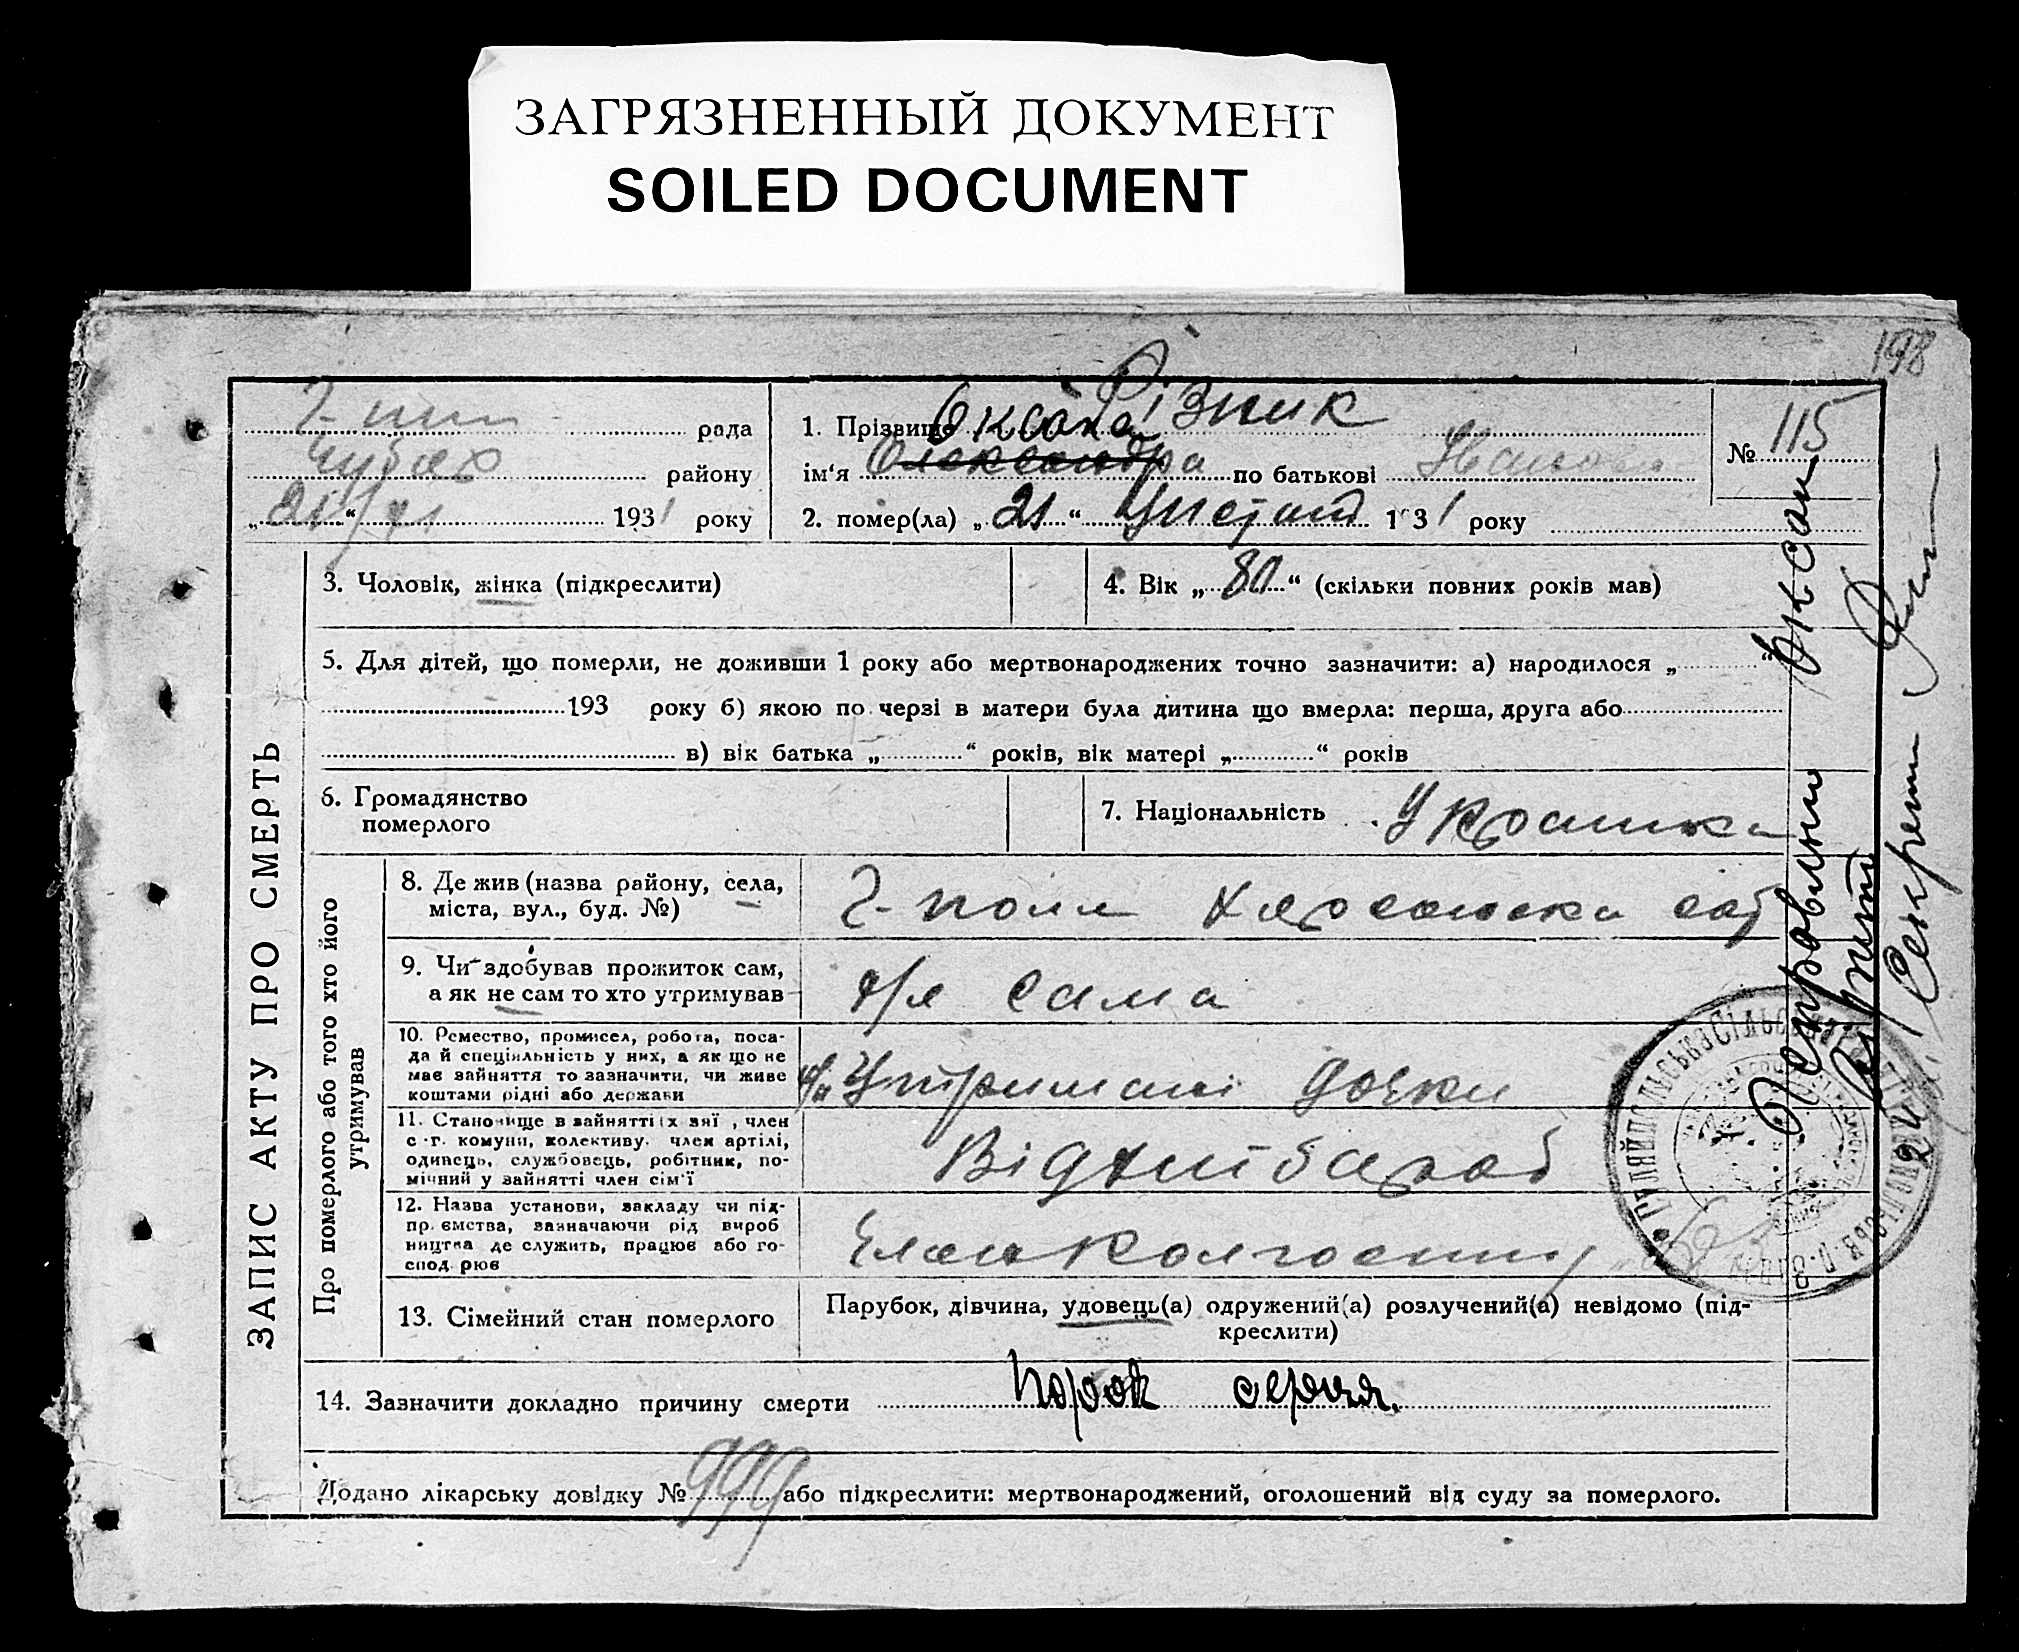 ЗАГРЯЗНЕННЫЙ ДОКУМЕНТ
SOILED DOCUMENT
198
рада
району
„21“ 1931 року
1. Прізвище Різник
Оксана
ім‘я Олександра по батькові Іванова
2. помер(ла) „21“ 1931 року
№ 115
3. Чоловік, жінка (підкреслити)
4. Вік „80“ (скільки повних років мав)
5. Для дітей, що померли, не доживши 1 року або мертвонароджених точно зазначити: а) народилося „ “
193 року б) якою по черзі в матери була дитина що вмерла: перша, друга або
в) вік батька „ “ років, вік матері „ “ років
6. Громадянство
померлого
7. Національність Украинка
ЗАПИС АКТУ ПРО СМЕРТЬ
Про померлого або того хто його
утримував
8. Де жив (назва району, села,
міста, вул., буд. №)
Г-поле
9. Чи здобував прожиток сам,
а як не сам то хто утримував
Не сама
10. Ремество, промисел, робота, поса-
да й спеціяльність у них, а як що не
має зайняття то зазначити, чи живе
коштами рідні або держави
На утримані дочки
11. Становище в зайнятті їх зяї , член
с.-г. комуни, колективу. член артілі,
одинець, службовець, робітник, по-
мічний у зайнятті член сім'ї
12. Назва установи, закладу чи під-
пр.ємства, зазначаючи рід вироб
ництва де служить, працює або го-
спод. рює
13. Сімейний стан померлого
Парубок, дівчина, удовець(а) одружений(а) розлучений(а) невідомо (під-
креслити)
14. Зазначити докладно причину смерти порок серця.
Додано лікарську довідку № 999 або підкреслити: мертвонароджений, оголошений від суду за померлого.
Исправлению Оксан
верить
Секретар